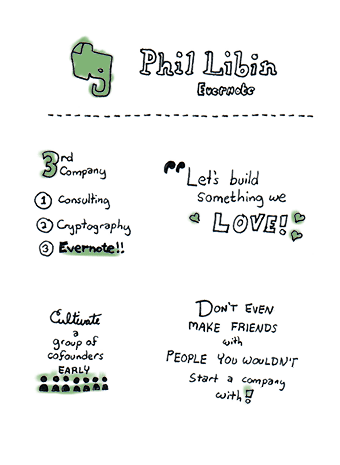 Phil Libin
Evernote
3rd
Company
1 Consulting
2 Cryptography
3 Evernote!!
"Let's build
something we
LOVE!
Cultivate
a
group of
cofounders
EARLY
DON'T EVEN
MAKE FRIENDS
with
PEOPLE YOU WOULDN'T
start a company
with!